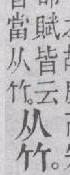 賦皆云
當从竹。
从竹。